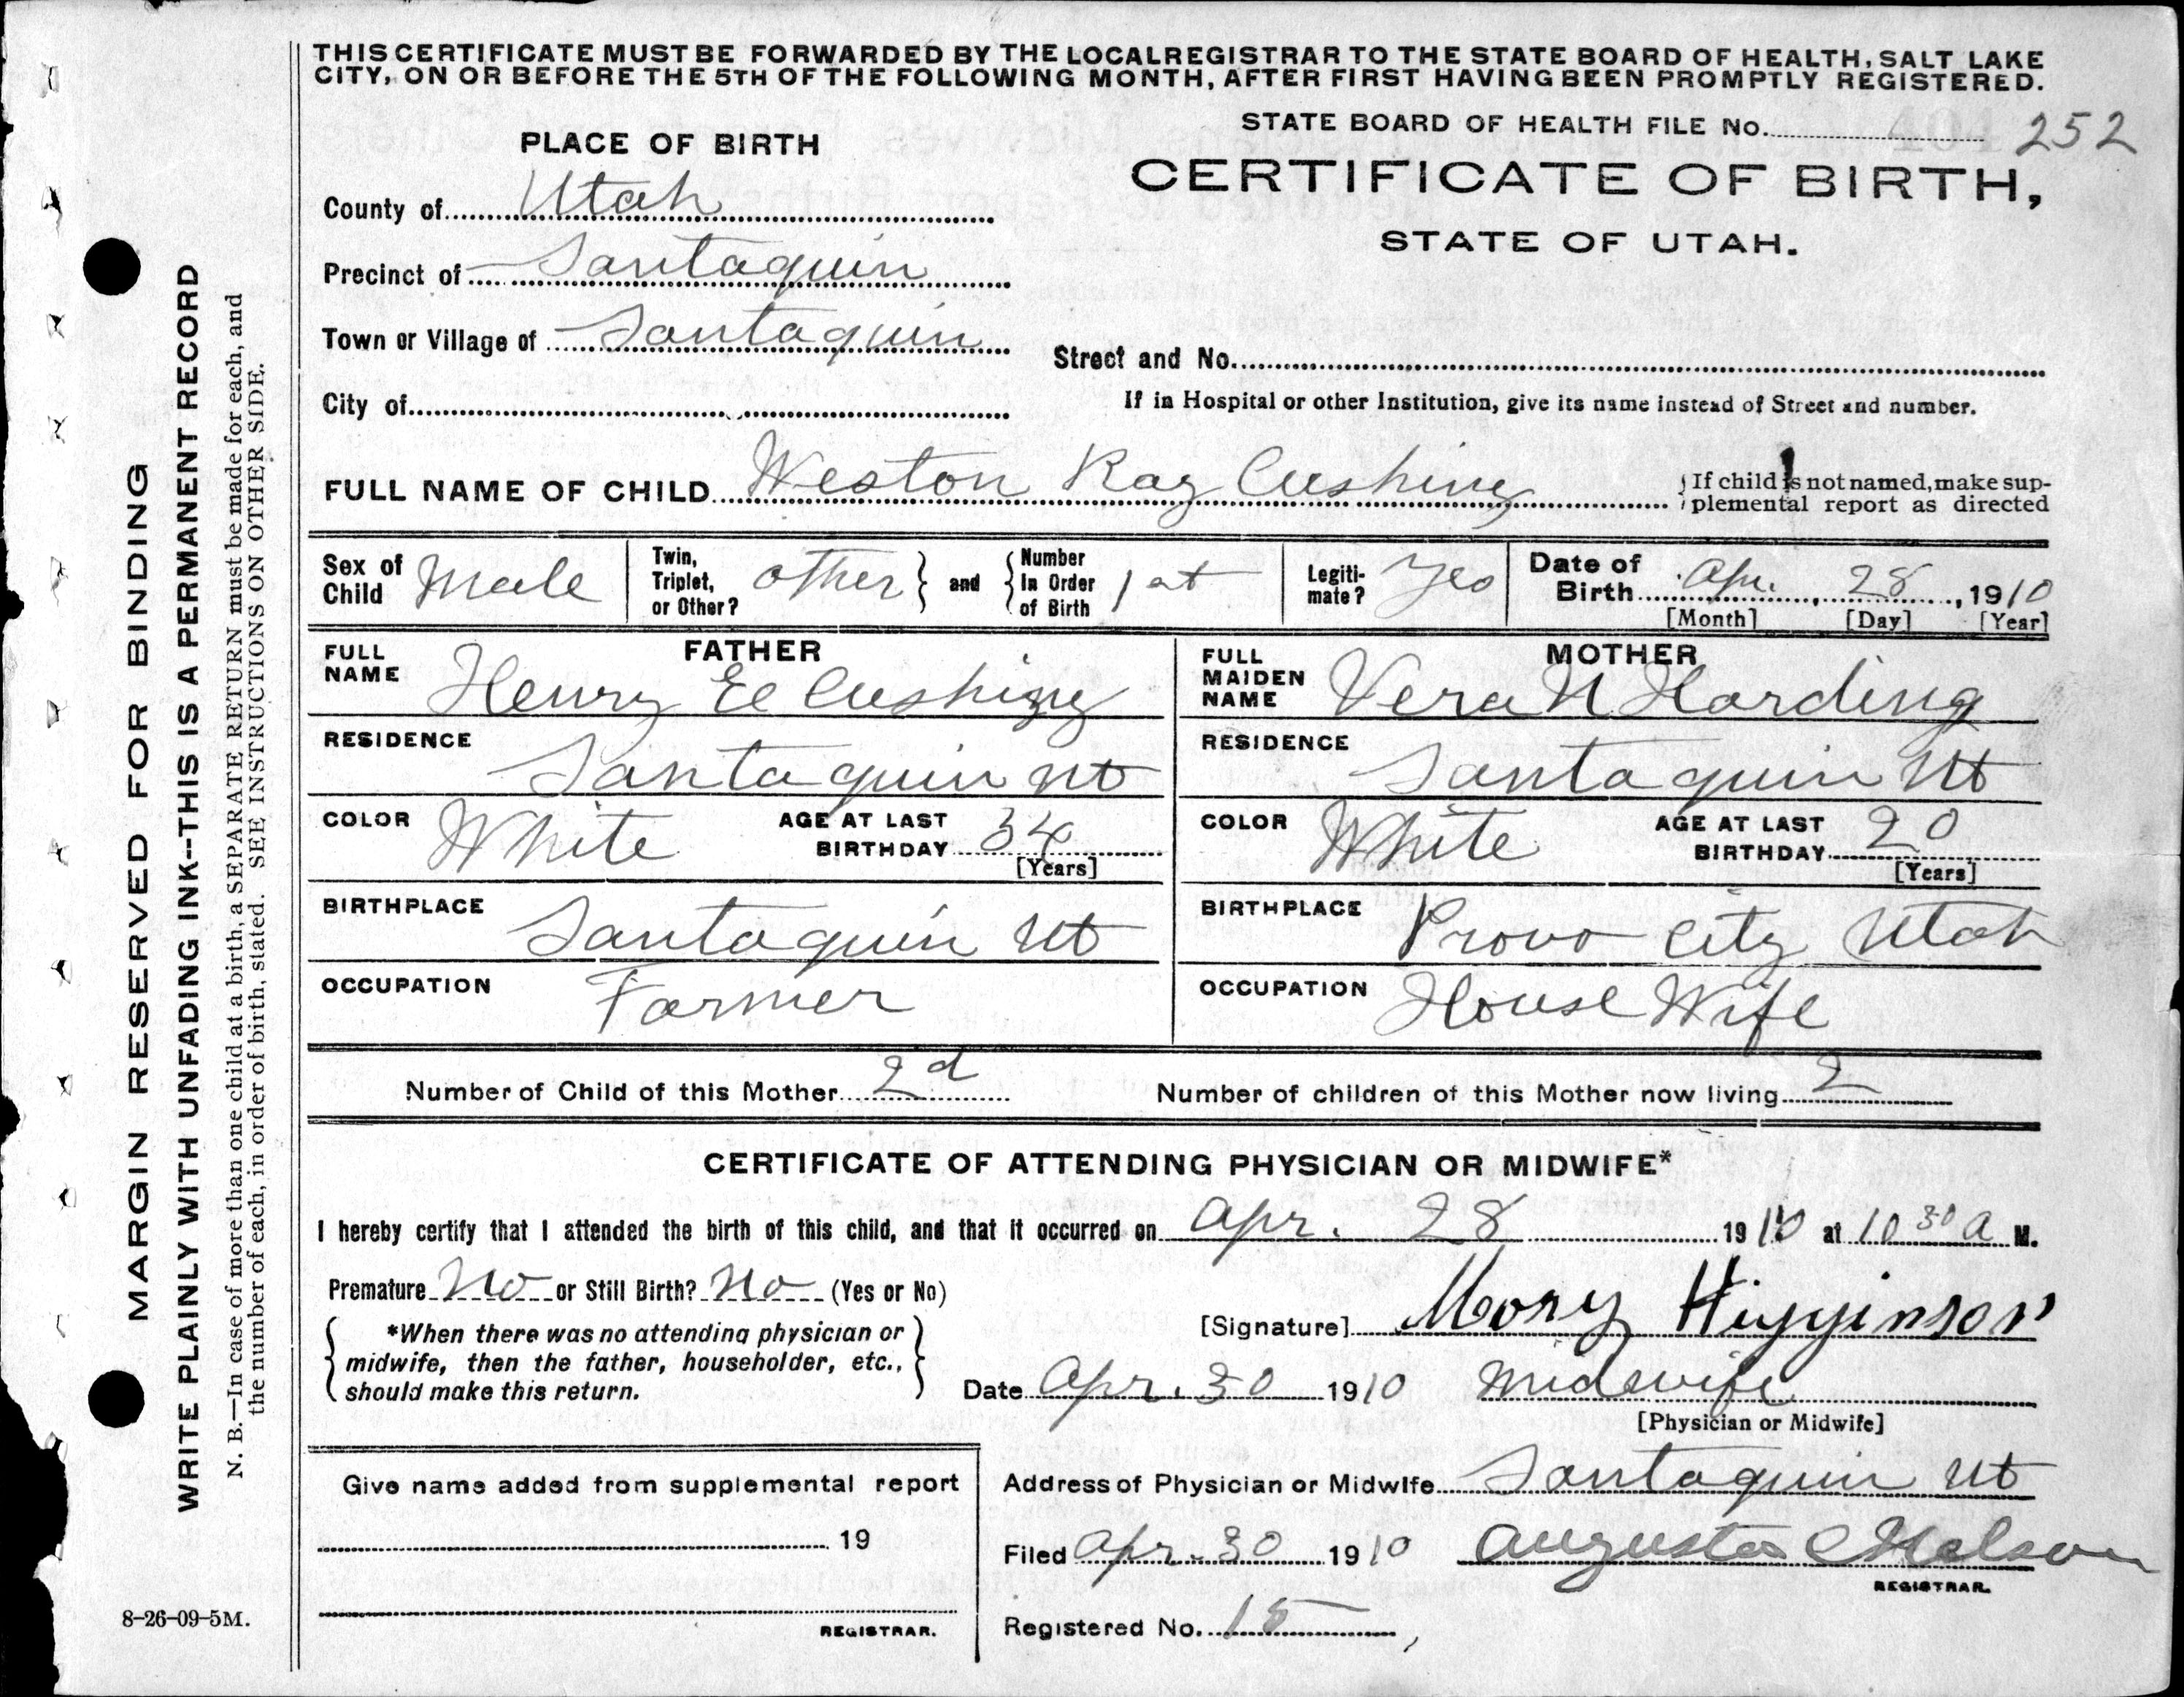 THIS CERTIFICATE MUST BE FORWARDED BY THE LOCAL REGISTRAR TO THE STATE BOARD OF HEALTH, SALT LAKE
CITY, ON OR BEFORE THE 5TH OF THE FOLLOWING MONTH, AFTER FIRST HAVING BEEN PROMPTLY REGISTERED.
STATE BOARD OF HEALTH FILE No. 252
PLACE OF BIRTH
CERTIFICATE OF BIRTH,
STATE OF UTAH.
County of Utah
Precinct of Santaquin
Town or Village of Santaquin
Street and No.
City of
If in Hospital or other Institution, give its name instead of Street and number.
FULL NAME OF CHILD Weston Ray Cushing
If child is not named, make sup-
plemental report as directed
Sex of Child Male
Twin, Triplet, or Other? other and Number In Order of Birth 1st
Legiti-mate? Yes
Date of Birth Apr. 28, 1910
[Month] [Day] [Year]
FATHER
FULL NAME Henry El Cushing
RESIDENCE Santaquin Ut
COLOR White AGE AT LAST BIRTHDAY 34
[Years]
BIRTHPLACE Santaquin Ut
OCCUPATION Farmer
MOTHER
FULL MAIDEN NAME Vera N Harding
RESIDENCE Santaquin Ut
COLOR White AGE AT LAST BIRTHDAY 20
[Years]
BIRTHPLACE Provo City Utah
OCCUPATION House Wife
Number of Child of this Mother 2d Number of children of this Mother now living 2
CERTIFICATE OF ATTENDING PHYSICIAN OR MIDWIFE*
I hereby certify that I attended the birth of this child, and that it occurred on Apr. 28 1910 at 10 30 A M.
Premature No or Still Birth? No (Yes or No)
*When there was no attending physician or
midwife, then the father, householder, etc.,
should make this return.
[Signature] Mary Higginson
Date Apr. 30 1910 Midwife
[Physician or Midwife]
Give name added from supplemental report
19
REGISTRAR.
Address of Physician or Midwife Santaquin Ut
Filed Apr. 30 1910 Augusta Nelson
REGISTRAR.
Registered No. 15
8-26-09-5M.
MARGIN RESERVED FOR BINDING
WRITE PLAINLY WITH UNFADING INK--THIS IS A PERMANENT RECORD
N. B.—In case of more than one child at a birth, a SEPARATE RETURN must be made for each, and
the number of each, in order of birth, stated. SEE INSTRUCTIONS ON OTHER SIDE.